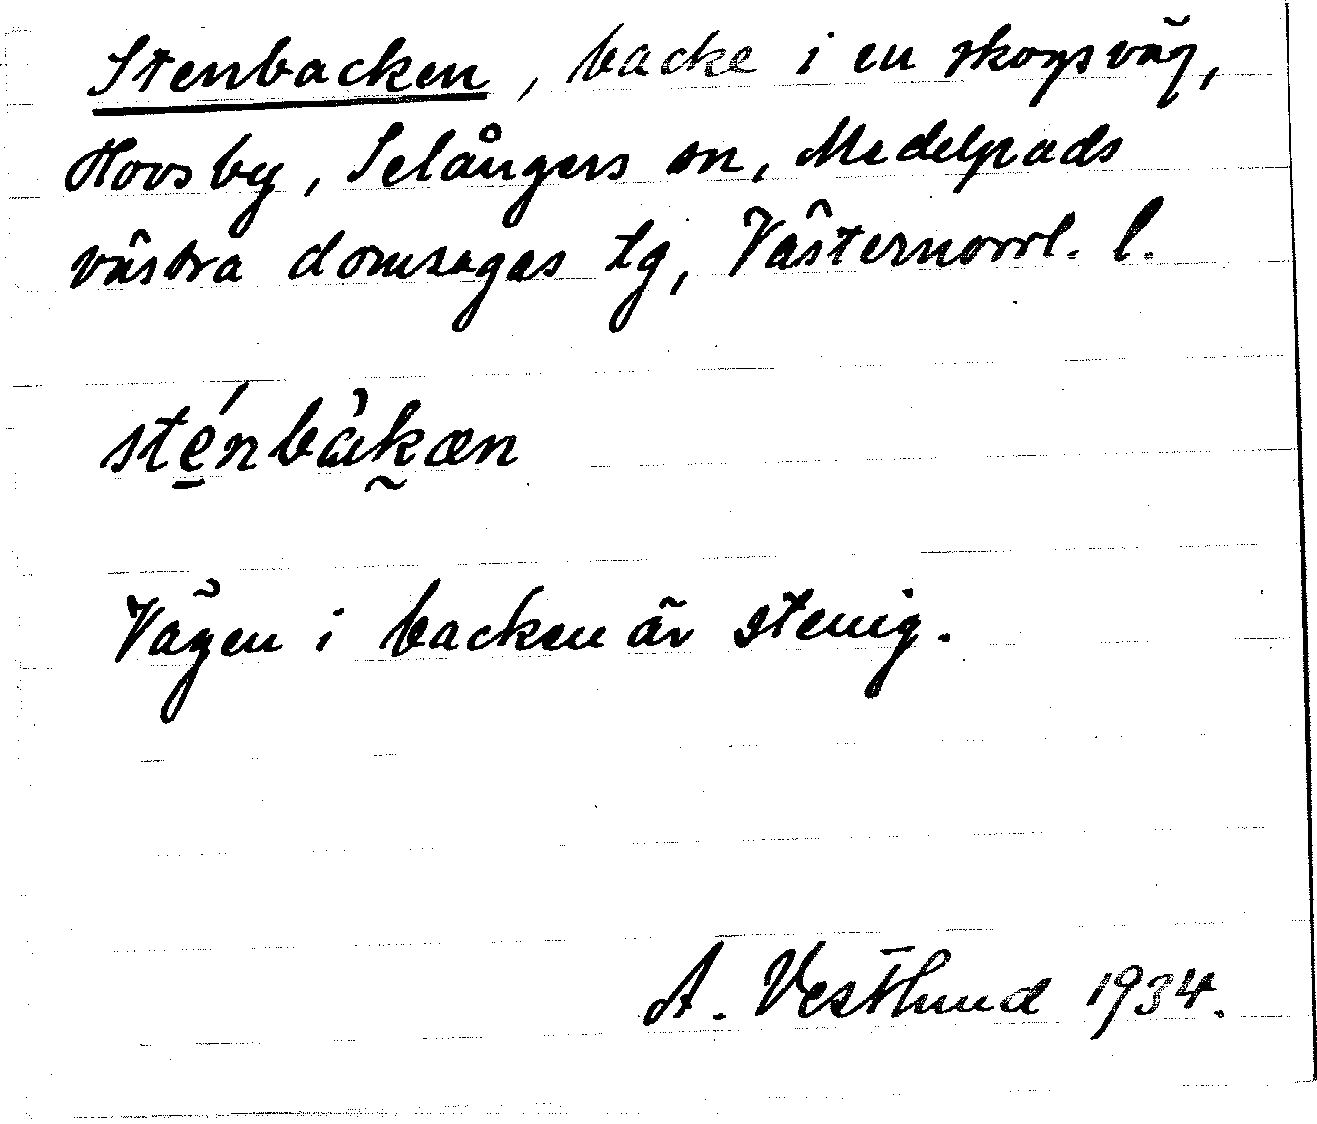 Stenbacken, backe i en skogsväg,
Hovsby, Selångers sn, Medelpads
västra domsagas tg, Västernorrl. l.
sté̱nbàk̰æn
Vägen i backen är stenig.
A. Vestlund 1934.